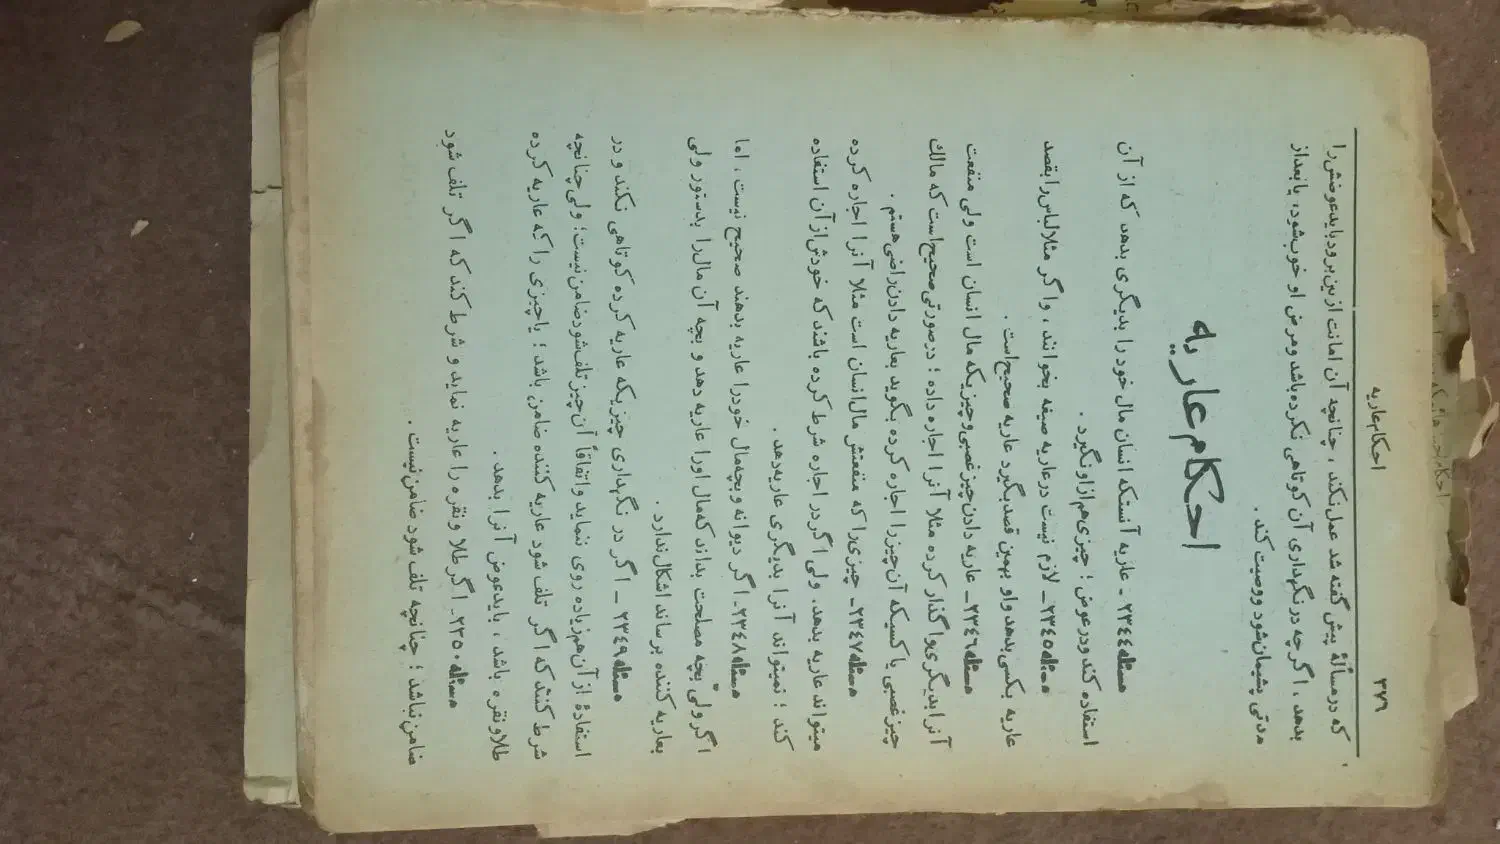 ۳۷۶
احکام عاریه
که در مسألهٔ پیش گفته شد عمل نکند ، چنانچه آن امانت از بین برود باید عوضش را
بدهد ، اگر چه در نگهداری آن کوتاهی نکرده باشد و مرض او خوب شود، یا بعد از
مدتی پشیمان شود و وصیت کند .
احکام عاریه
مسئله ۲۳٤٤ - عاریه آنستکه انسان مال خود را بدیگری بدهد که از آن
استفاده کند و در عوض ؛ چیزی هم از او نگیرد .
مسئله ۲۳٤٥ ـ لازم نیست در عاریه صیغه بخوانند ، و اگر مثلا لباس را بقصد
عاریه بکسی بدهد و او بهمین قصد بگیرد عاریه صحیح است .
مسئله ۲۳٤٦ ـ عاریه دادن چیز غصبی و چیزیکه مال انسان است ولی منفعت
آنرا بدیگری واگذار کرده مثلا آنرا اجاره داده ؛ در صورتی صحیح است که مالك
چیز غصبی یا کسیکه آن چیز را اجاره کرده بگوید بعاریه دادن راضی هستم .
مسئله ۲۳٤۷ ـ چیزی را که منفعتش مال انسان است مثلا آنرا اجاره کرده
میتواند عاریه بدهد. ولی اگر در اجاره شرط کرده باشند که خودش از آن استفاده
کند ؛ نمیتواند آنرا بدیگری عاریه دهد .
مسئله ۲۳٤۸ ـ اگر دیوانه و بچه مال خود را عاریه بدهند صحیح نیست ، اما
اگر ولیّ بچه مصلحت بداند که مال او را عاریه دهد و بچه آن مال را بدستور ولی
بعاریه کننده برساند اشکال ندارد .
مسئله ۲۳٤۹ ـ اگر در نگهداری چیزیکه عاریه کرده کوتاهی نکند و در
استفادهٔ از آن هم زیاده روی ننماید و اتفاقاً آن چیز تلف شود ضامن نیست؛ ولی چنانچه
شرط کنند که اگر تلف شود عاریه کننده ضامن باشد ؛ یا چیزی را که عاریه کرده
طلا و نقره باشد ، باید عوض آنرا بدهد .
مسئله ۲۳۵۰ ـ اگر طلا و نقره را عاریه نماید و شرط کند که اگر تلف شود
ضامن نباشد ؛ چنانچه تلف شود ضامن نیست .